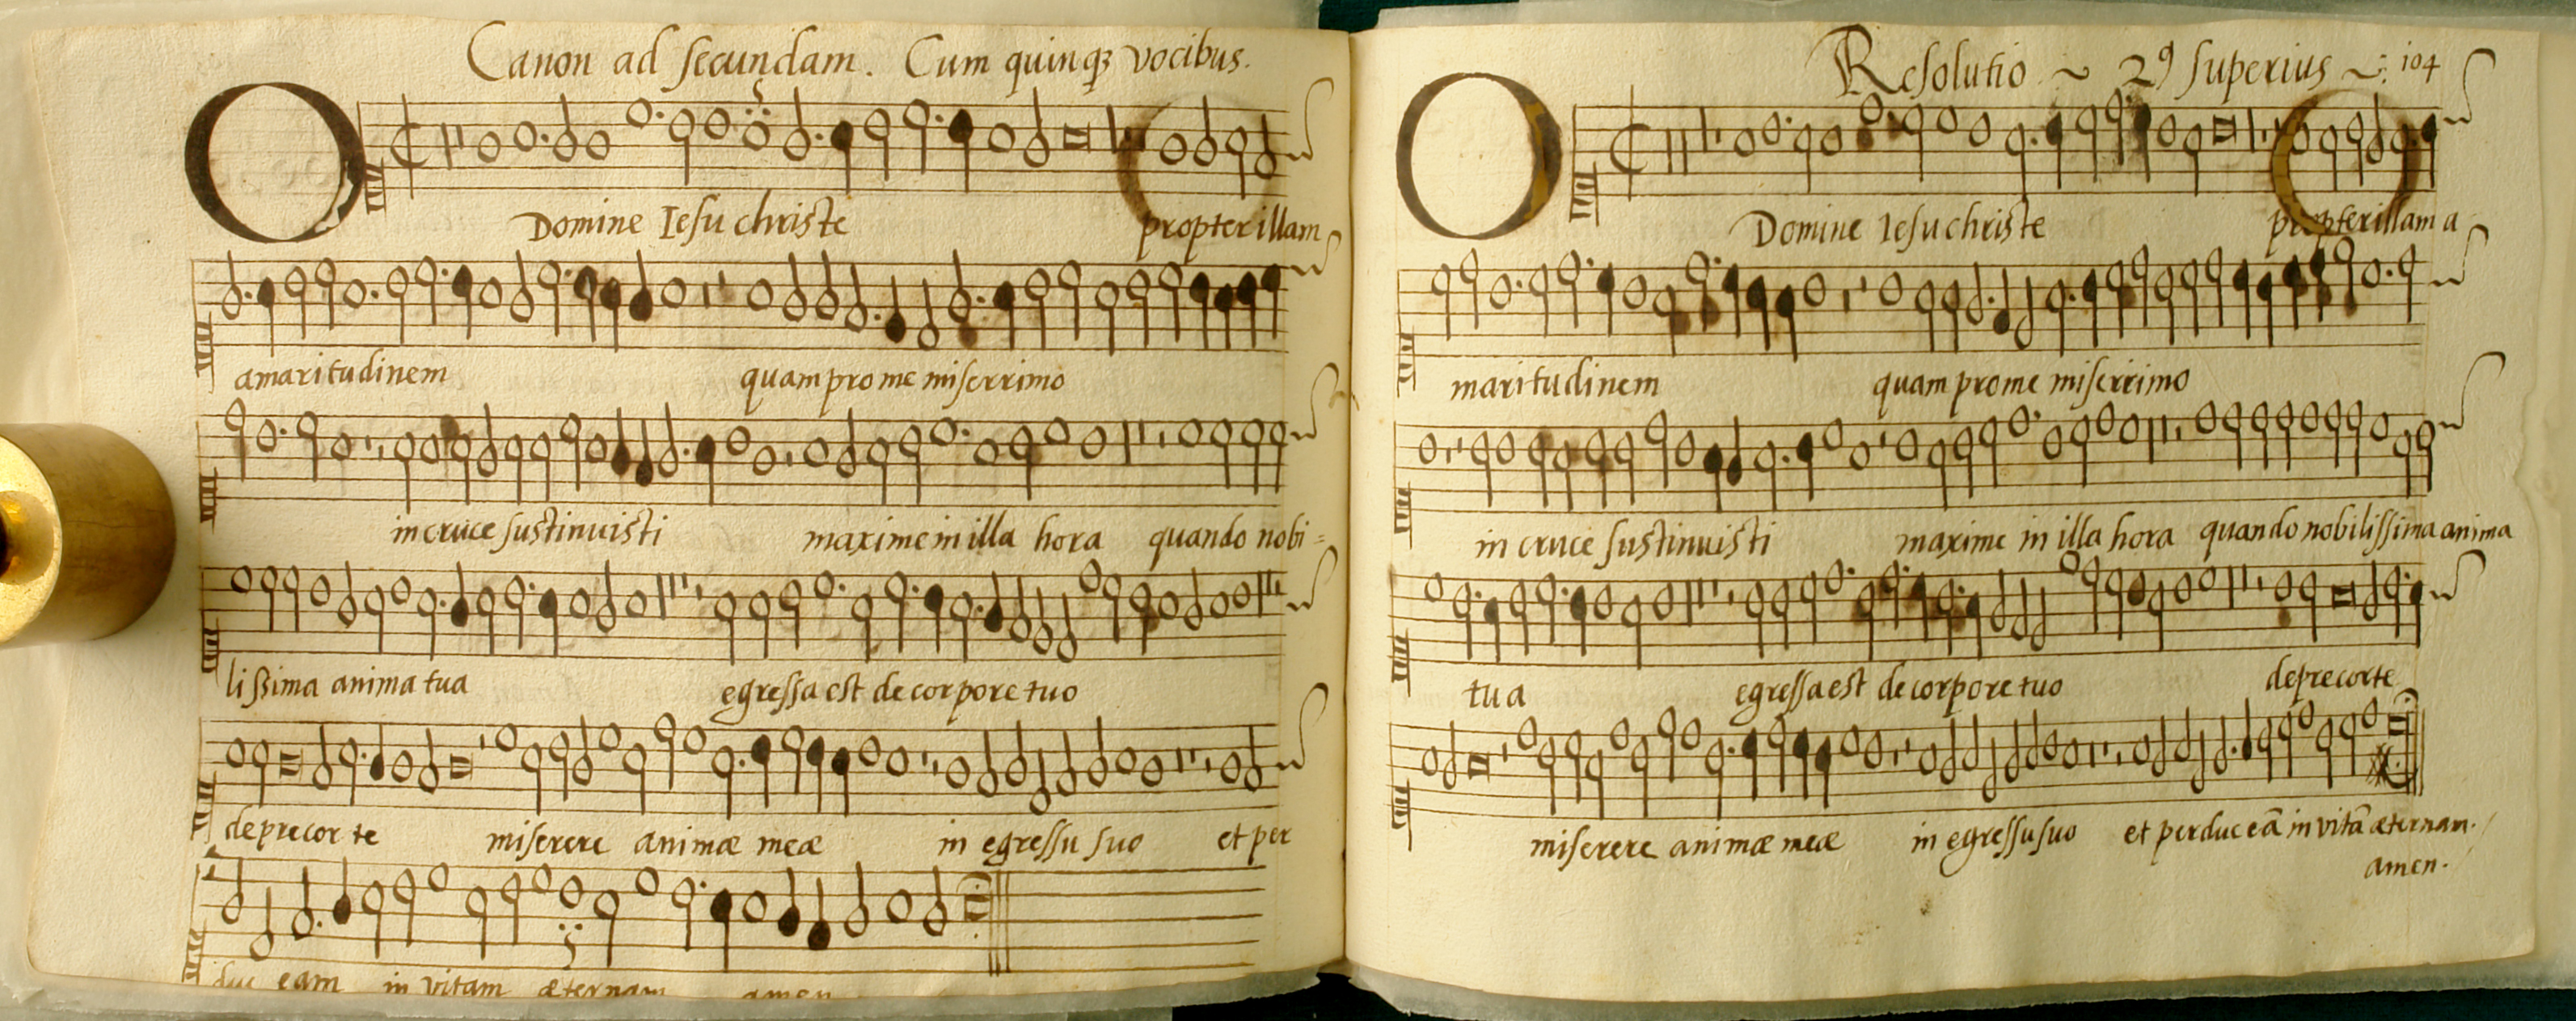 Canon ad secundam. Cum quinq₃ vocibus.
O
Domine Iesu christe propter illam
amaritudinem quam pro me miserrimo
in cruce sustinuisti maxime in illa hora quando nobi=
lissima anima tua egressa est de corpore tuo
deprecor te miserere animæ meæ in egressu suo et per
duc eam in vitam æternam amen
Resolutio ~ 2⁹ superius ~: 104
O
Domine Iesu christe propter illam a
maritudinem quam pro me miserrimo
in cruce sustinuisti maxime in illa hora quando nobilissima anima
tua egressa est de corpore tuo deprecor te
miserere animæ meæ in egressu suo et perduc eā in vitā æternam.
amen.